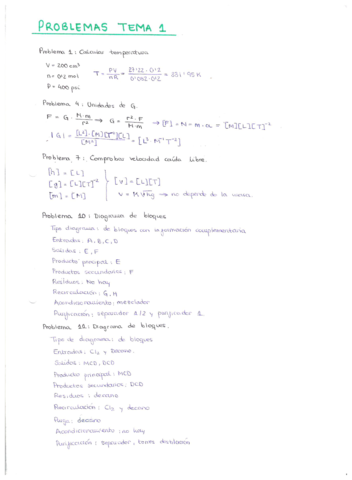 PROBLEMAS TEMA 1
Problema 1: Calcular temperatura.
V = 300 cm³
n = 0'2 mol
P = 400 psi
T = PV/nR = 27'22 · 0'3 / 0'082 · 0'2
Problema 4: Unidades de G.
F = G · M·m/r² → G = r²·F/M·m → [F] = N = m·a = [M][L][T]⁻²
[G] = [L²]·[M][T⁻²][L]/[M²] = [L³ M⁻¹ T⁻²]
Problema 7: Comprobar velocidad caída libre.
[h] = [L]
[g] = [L][T]⁻²
[m] = [M]
[v] = [L][T]
no depende de la masa
Problema 10: Diagrama de bloques
Tipo diagrama: de bloques con información complementaria
Entradas: A, B, C, D
Salidas: E, F
Producto principal: E
Productos secundarios: F
Residuos: No hay
Recirculación: G, H
Acondicionamiento: mezclador
Purificación: separador 1 i 2 y purificador 1.
Problema 12: Diagrama de bloques.
Tipo de diagrama: de bloques
Entradas: Cl₂ y
Salidas: MCD, DCD
Producto principal: MCD
Productos secundarios: DCD
Residuos: decano
Recirculación: Cl₂ y decano
Purga: decano
Acondicionamiento: no hay
Purificación: separador, destilación